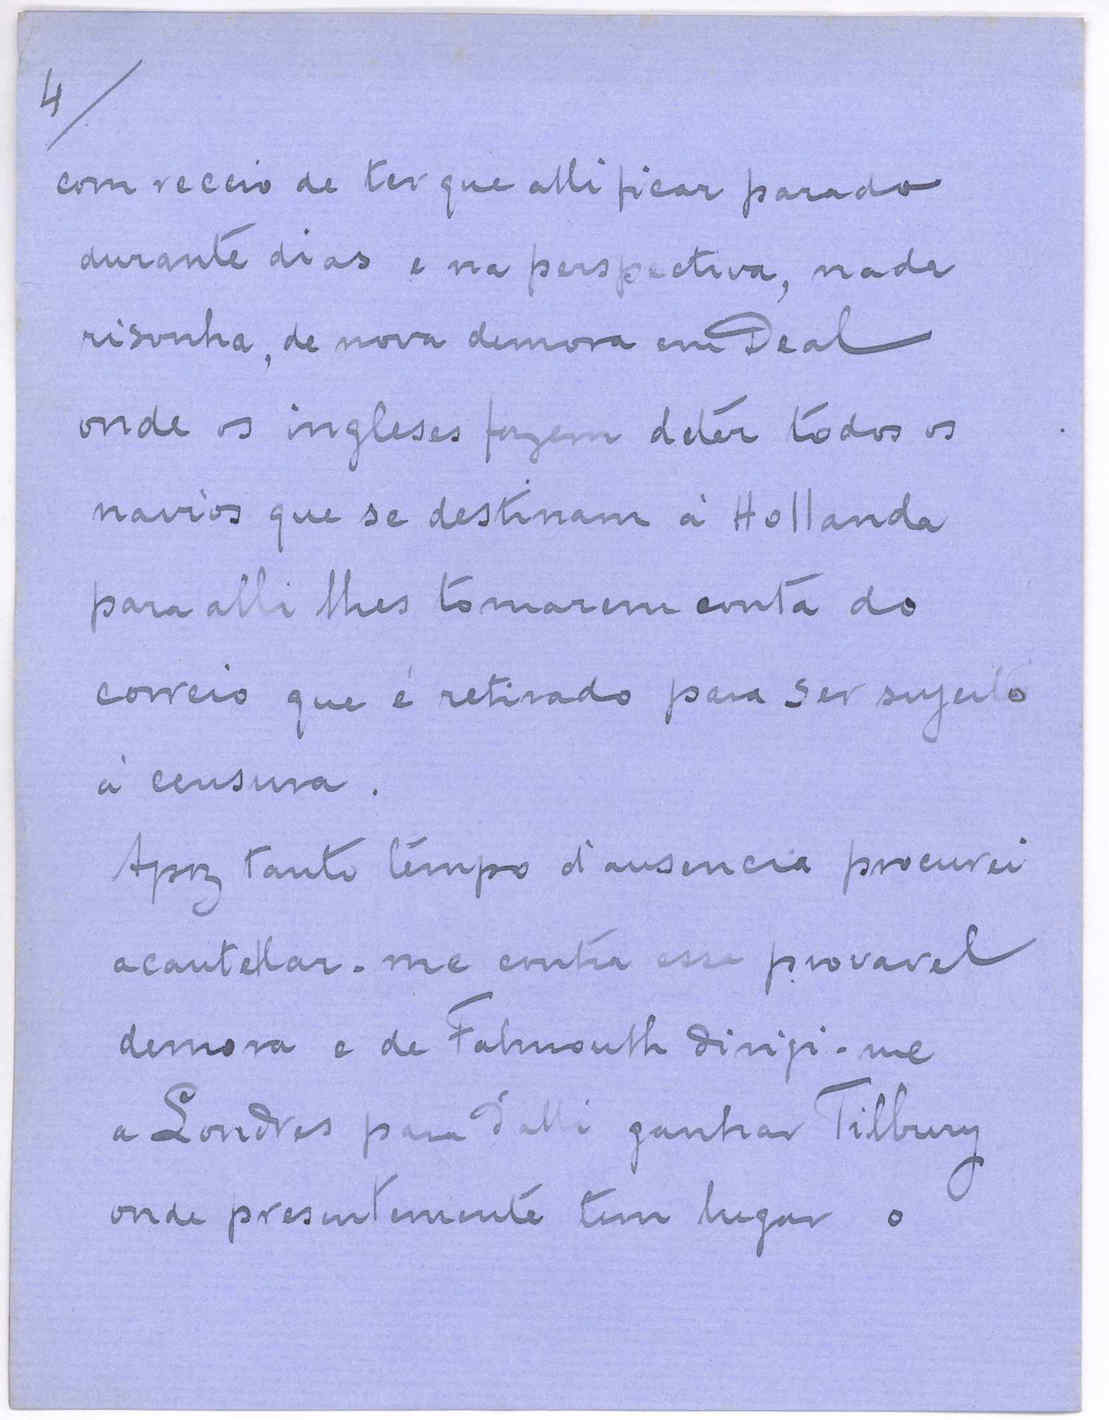 4/
com receio de ter que alli ficar parado
durante dias e na perspectiva, nada
risonha, de nova demora em Deal
onde os ingleses fazem detêr todos os
navios que se destinam á Hollanda
para alli lhes tomarem conta do
correio que é retirado para ser sujeito
á censura.
Apoz tanto tempo d'ausencia procurei
acautellar-me contra essa provavel
demora e de Falmouth dirigi-me
a Londres para d'alli ganhar Tilbury
onde presentemente tem lugar o